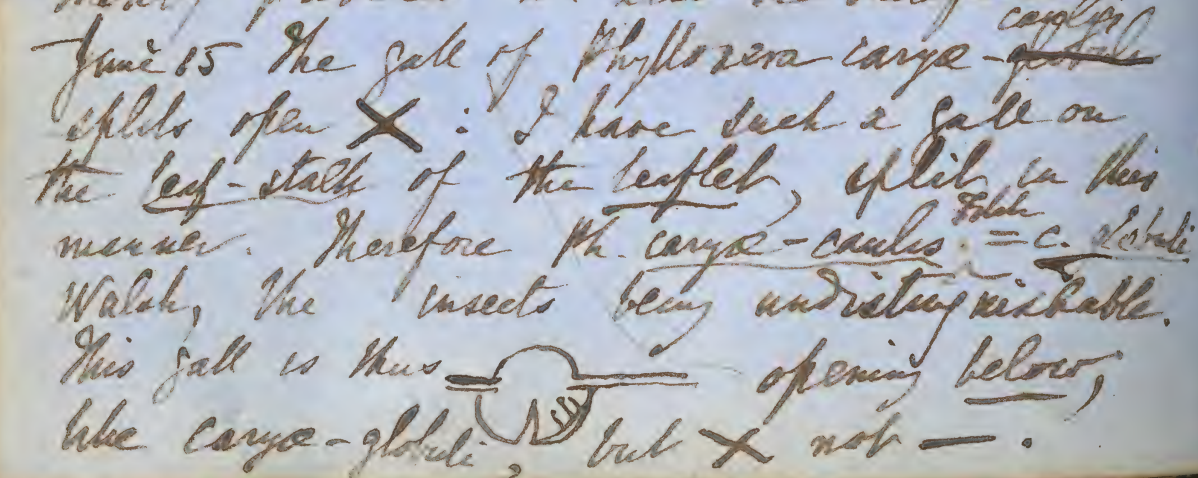 June 15 The gall of Phylloxera caryæ - caulis globuli
splits open X : I have such a gall on
the leaf-stalk of the leaflet, split in this
manner. Therefore Ph. caryæ-caulis Fitch = c. globuli
Walsh, the insects being undistinguishable.
This gall is thus opening below,
like caryæ-globuli, but X not — .